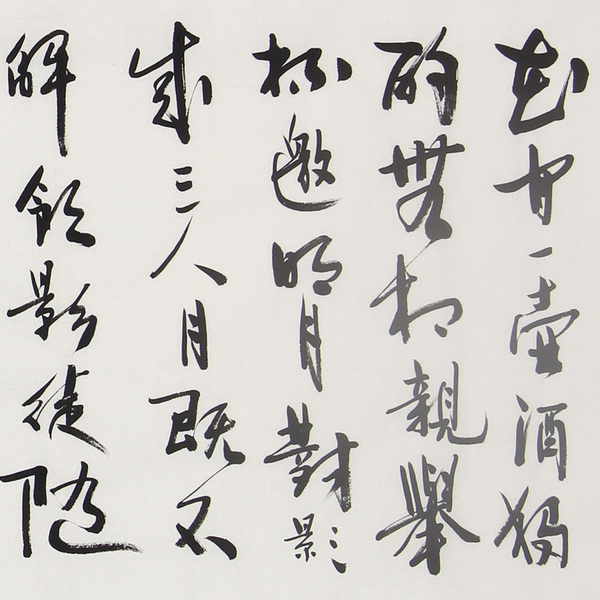 花間一壺酒獨
酌無相親舉
杯邀明月對影
成三人月既不
解飲影徒隨